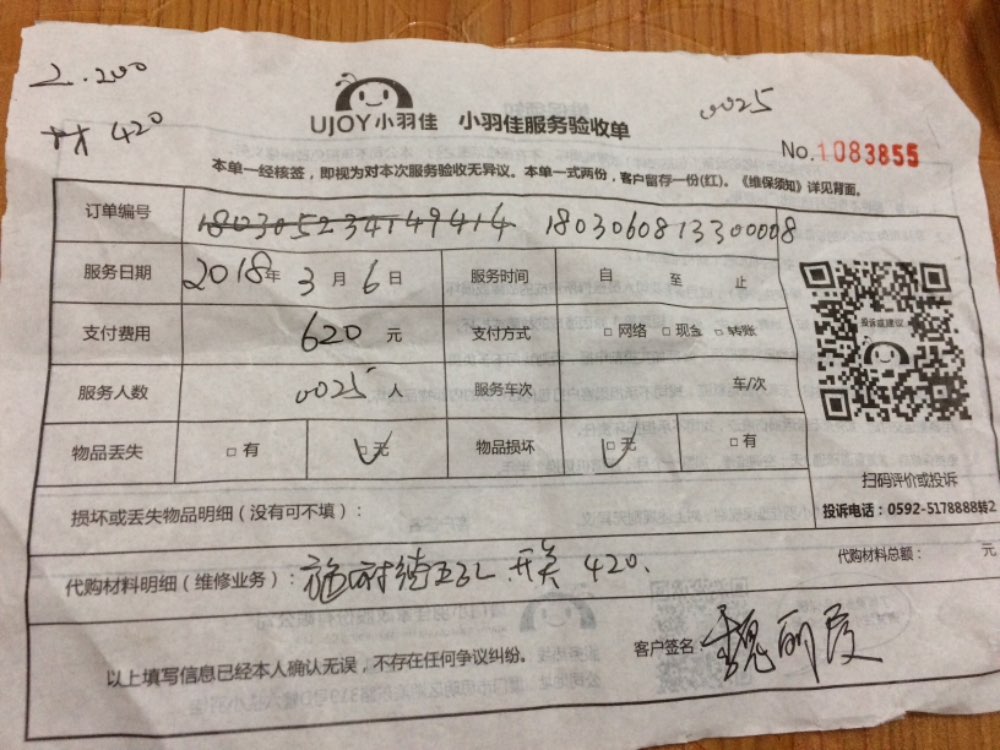 工.200
材 420
UJOY小羽佳 小羽佳服务验收单
0025
No.1083855
本单一经核签，即视为对本次服务验收无异议。本单一式两份，客户留存一份(红)。《维保须知》详见背面。
订单编号 180305234149414 18030608133000008
服务日期 2018年 3月 6日 服务时间 自 至 止
支付费用 620 元 支付方式 □网络 □现金 □转账
服务人数 0025人 服务车次 车/次
物品丢失 □有 □无 物品损坏 □无 □有
投诉或建议
扫码评价或投诉
投诉电话：0592-5178888转2
损坏或丢失物品明细（没有可不填）：
代购材料明细（维修业务）：施耐德 开关 420.
代购材料总额： 元
以上填写信息已经本人确认无误，不存在任何争议纠纷。
客户签名：魏丽霞